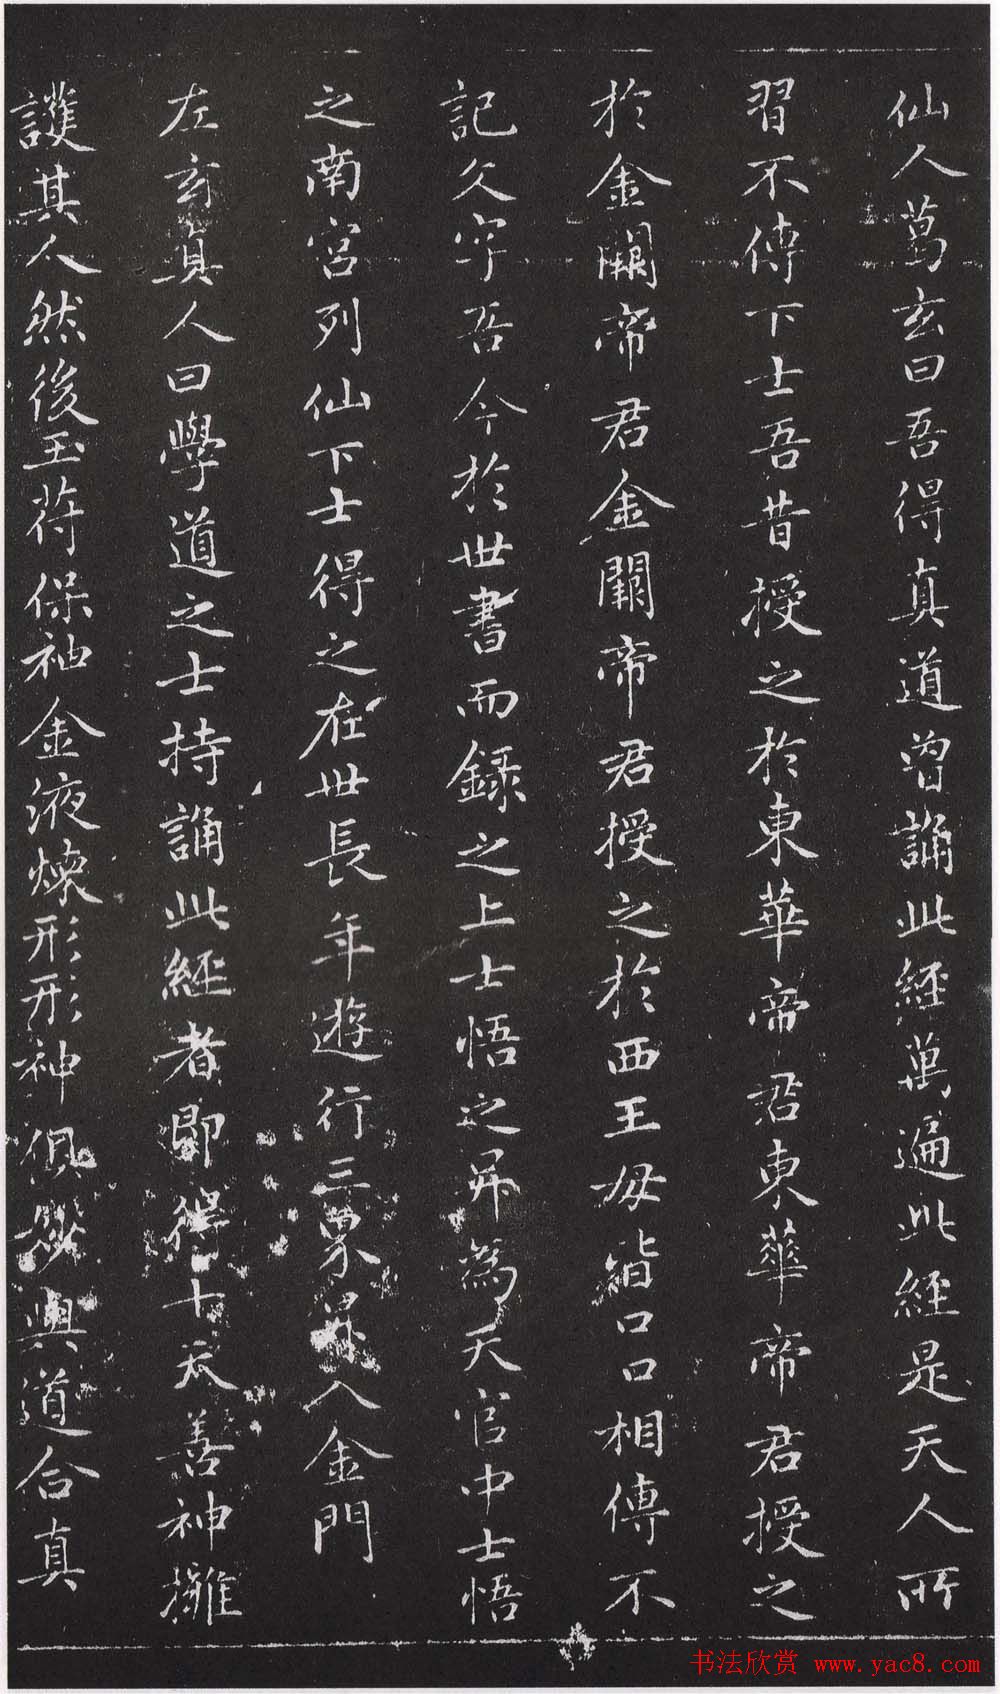 仙人葛玄曰吾得真道曾誦此經萬遍此經是天人所
習不傳下士吾昔授之於東華帝君東華帝君授之
於金闕帝君金闕帝君授之於西王母皆口口相傳不
記文字吾今於世書而錄之上士悟之升為天官中士悟
之南宮列仙下士得之在世長年遊行三界昇入金門
左玄真人曰學道之士持誦此經者即得十天善神擁
護其人然後玉符保神金液煉形形神俱妙與道合真
书法欣赏 www.yac8.com